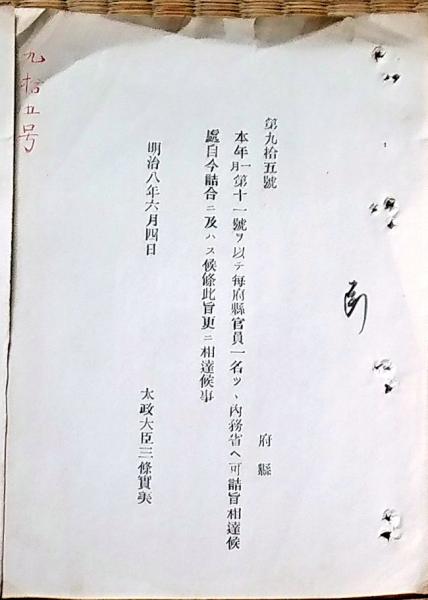 第九拾五號
府縣
本年一月第十一號ヲ以テ每府縣官員一名ツヽ內務省ヘ可詰旨相達候
處自今詰合ニ及ハス候條此旨更ニ相達候事
明治八年六月四日
太政大臣三條實美
九拾五号